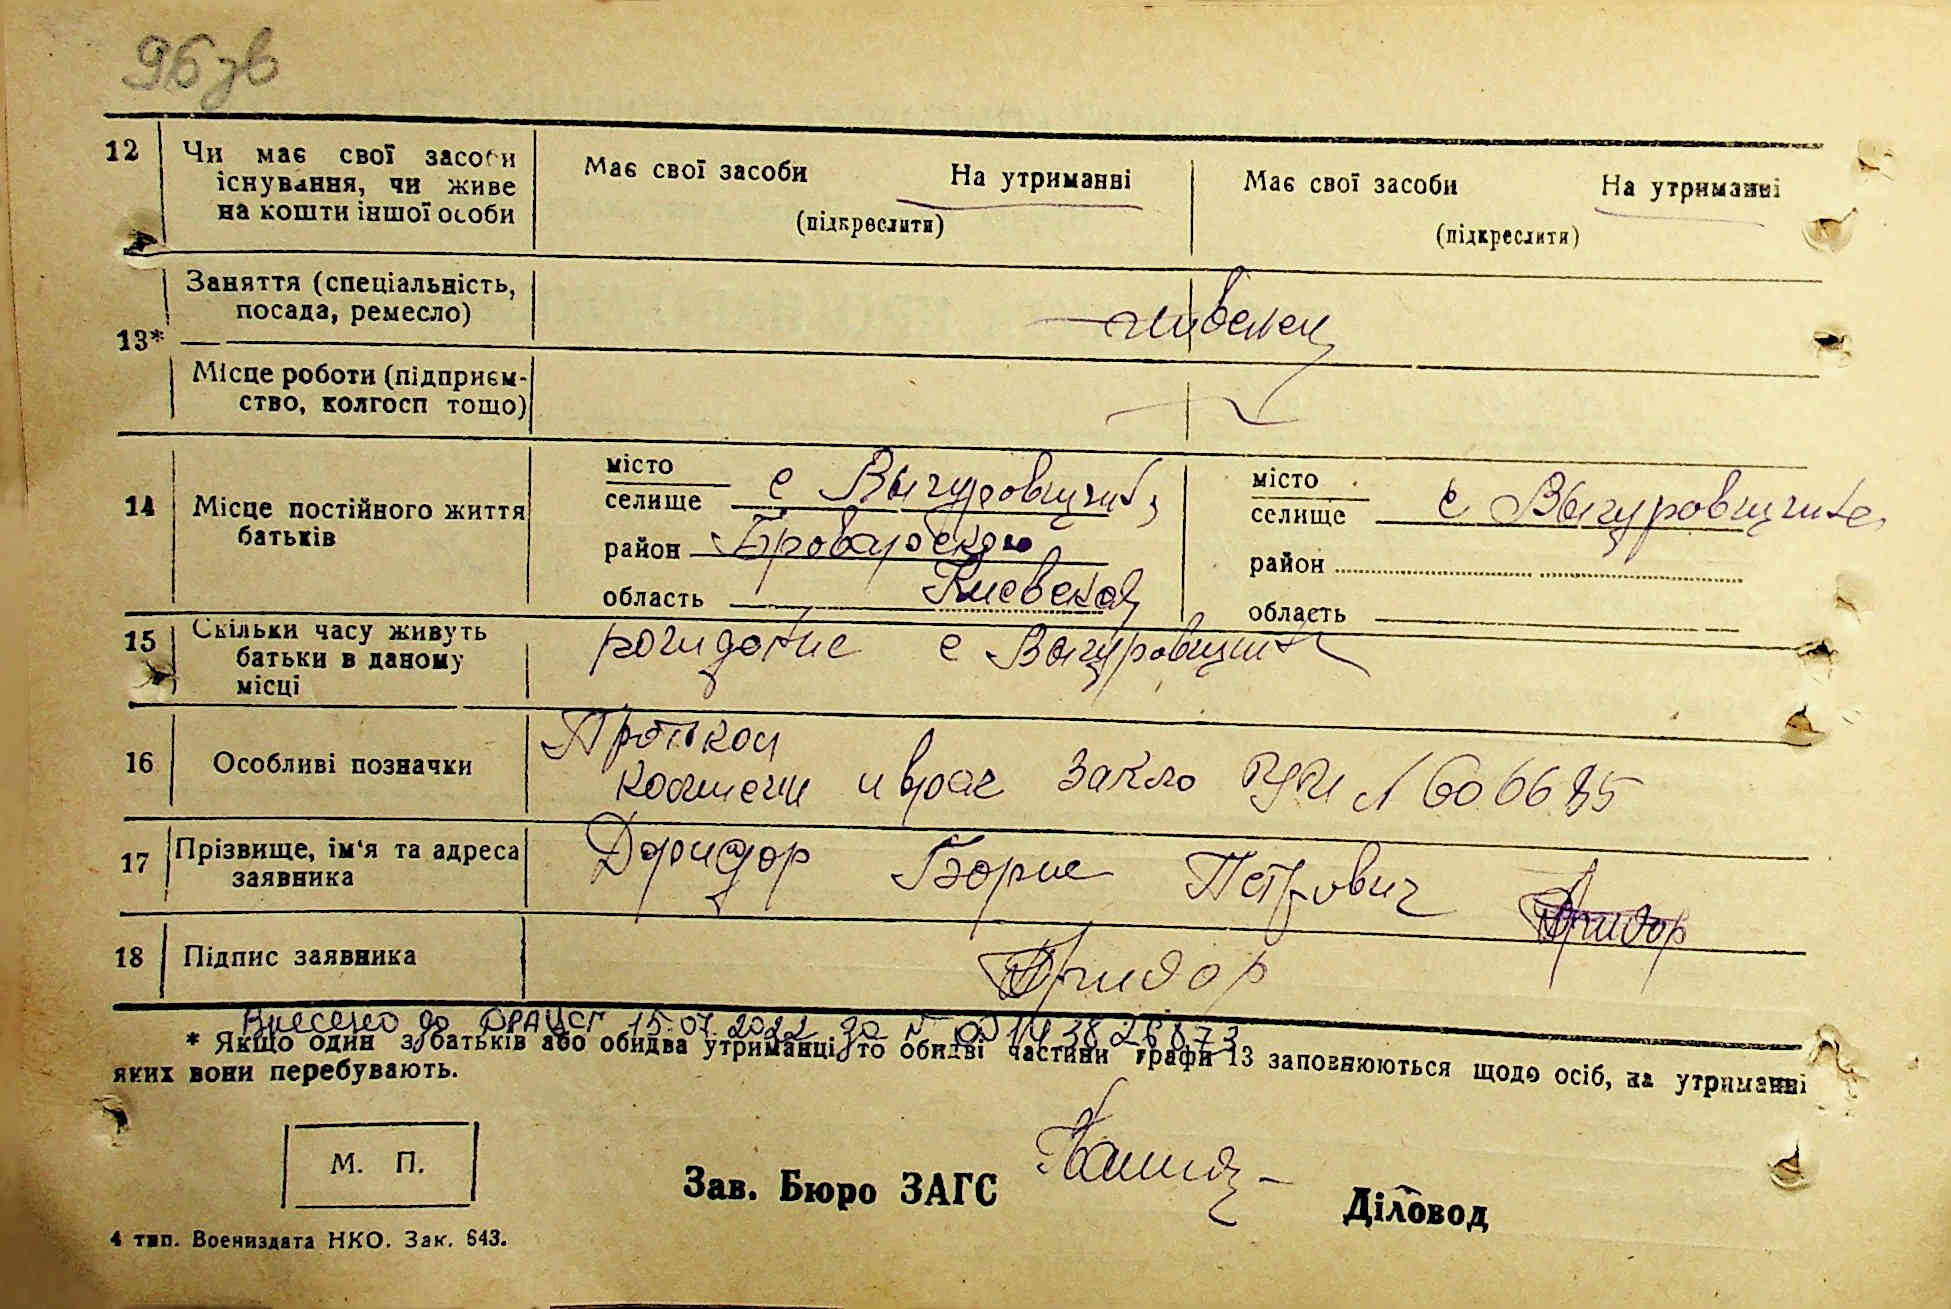 96 зв
12 Чи має свої засоби існування, чи живе на кошти іншої особи
Має свої засоби На утриманні
(підкреслити)
Має свої засоби На утриманні
(підкреслити)
13* Заняття (спеціальність, посада, ремесло)
Місце роботи (підприєм-
ство, колгосп тощо)
14 Місце постійного життя батьків
місто
селище с Выгуровщина
район Броварской
область Киевской
місто
селище с Выгуровщина
район
область
15 Скільки часу живуть батьки в даному місці
с Выгуровщина
16 Особливі позначки
и врач РУ № 606685
17 Прізвище, ім'я та адреса заявника
Доридор Борис Петрович
18 Підпис заявника
Внесено до ДРАЦСГ 15.07.2022 за №
* Якщо один з батьків або обидва утриманці, то обидві частини графи 13 заповнюються щодо осіб, на утриманні
яких вони перебувають.
М. П.
Зав. Бюро ЗАГС
Діловод
4 тип. Воениздата НКО. Зак. 643.